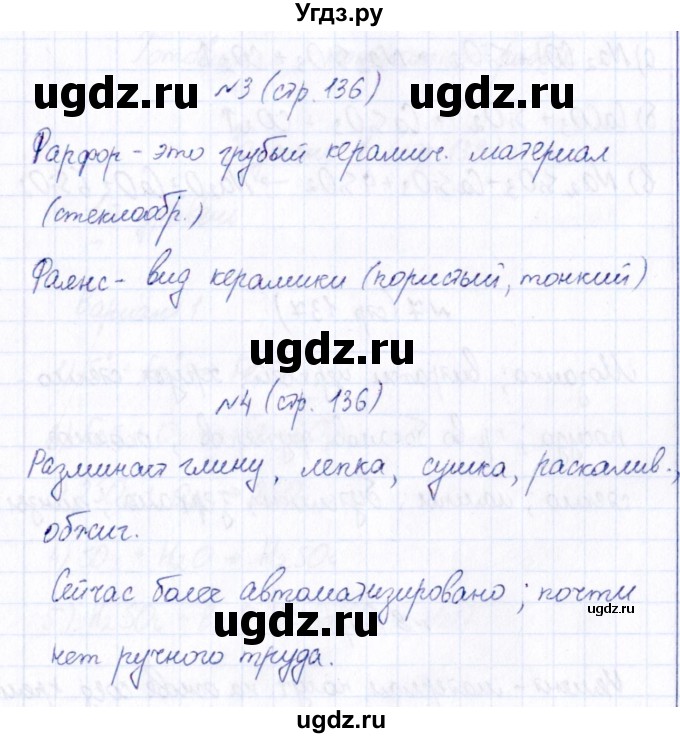 Угдз.ру
ugdz.ru ugdz.ru
№3 (стр. 136)
Фарфор - это грубый керамич. материал
(стеклообр.)
Фаянс - вид керамики (пористый, тонкий)
ugdz.ru
№4 (стр. 136)
Разминает глину, лепка, сушка, раскалив.,
обжиг.
Сейчас более автоматизировано; почти
ugdz.ru ugdz.ru
нет ручного труда.
ugdz.ru